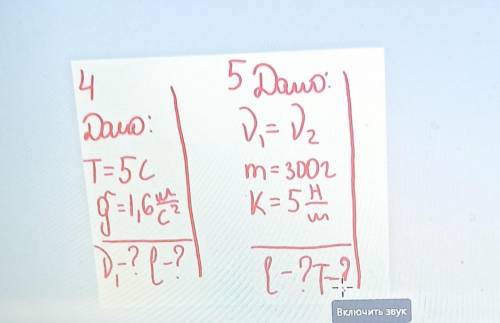 4
Дано:
T=5с
g=1,6 м/с²
ν₁-? l-?
5 Дано:
ν₁=ν₂
m=300г
K=5 Н/м
l-? T-?
Включить звук